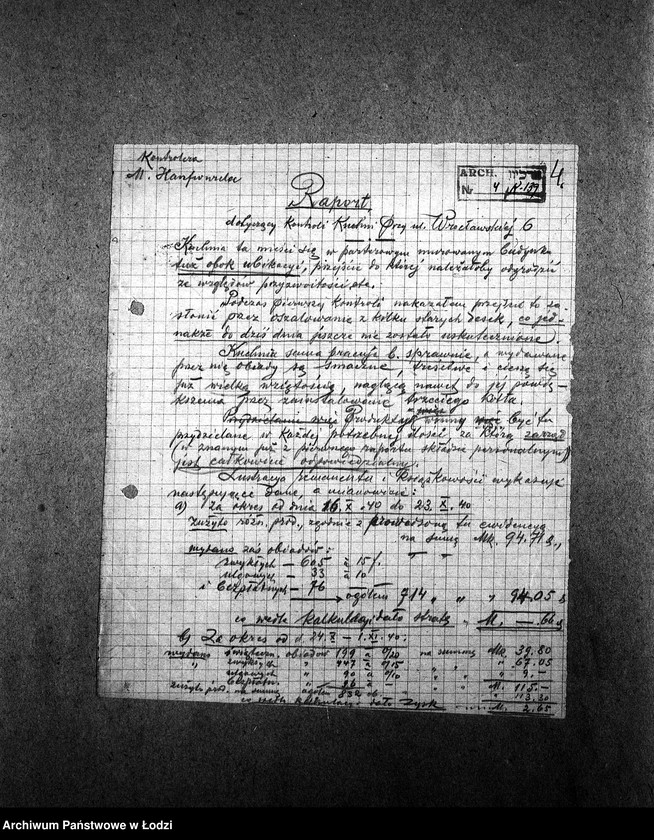 Kontrolera
M. Hanfwurcla
ARCH.
Nr 4
4.
Raport
dotyczący kontroli Kuchni przy ul. Wrocławskiej 6
Kuchnia ta mieści się w parterowym murowanym budynku
tuż obok ubikacji, przejście do której należałoby ogrodzić
ze względów przyzwoitości etc.
Podczas pierwszej kontroli nakazałem przejście to za-
słonić przez oszalowanie z kilku starych desek, co jed-
nakże do dziś dnia jeszcze nie zostało uskutecznione.
Kuchnia sama pracuje b. sprawnie, a wydawane
przez nią obiady są smaczne, treściwe i cieszą się
już wielką wziętością, naglącą nawet do jej powię-
kszenia przez zainstalowanie trzeciego kotła.
Produkty winny być tu
przydzielane w każdej potrzebnej ilości, za którą zarząd
(w znanym już z pierwszego raportu składzie personalnym)
jest całkowicie odpowiedzialny.
Lustracja remanentu i książkowości wykazuje
następujące dane, a mianowicie:
a) za okres od dnia 16.X.40 do 23.X.40
zużyto różn. prod., zgodnie z prowadzoną tu ewidencją
na sumę Mk. 94.71
wydano zaś obiadów:
zwykłych – 605 à 15 f.
ulgowych – 33 à 10
i bezpłatnych – 76
ogółem 714 " " " 94.05
co wedle kalkulacji dało stratę M. —.66
b) Za okres od d. 24.X – 1.XI.40:
wydano obiadów 199 à 0/20 na sumę Mk. 39.80
" zwykłych " 447 à 0/15 " " 67.05
ulgowych " 90 à 0/10 " " 9.–
bezpłatn. " 96 à – M. 115.–
zużyto prod. na sumę ogółem 832 ob. " 113.30
co wedle kalkulacji dało zysk M. 2.65
Archiwum Państwowe w Łodzi